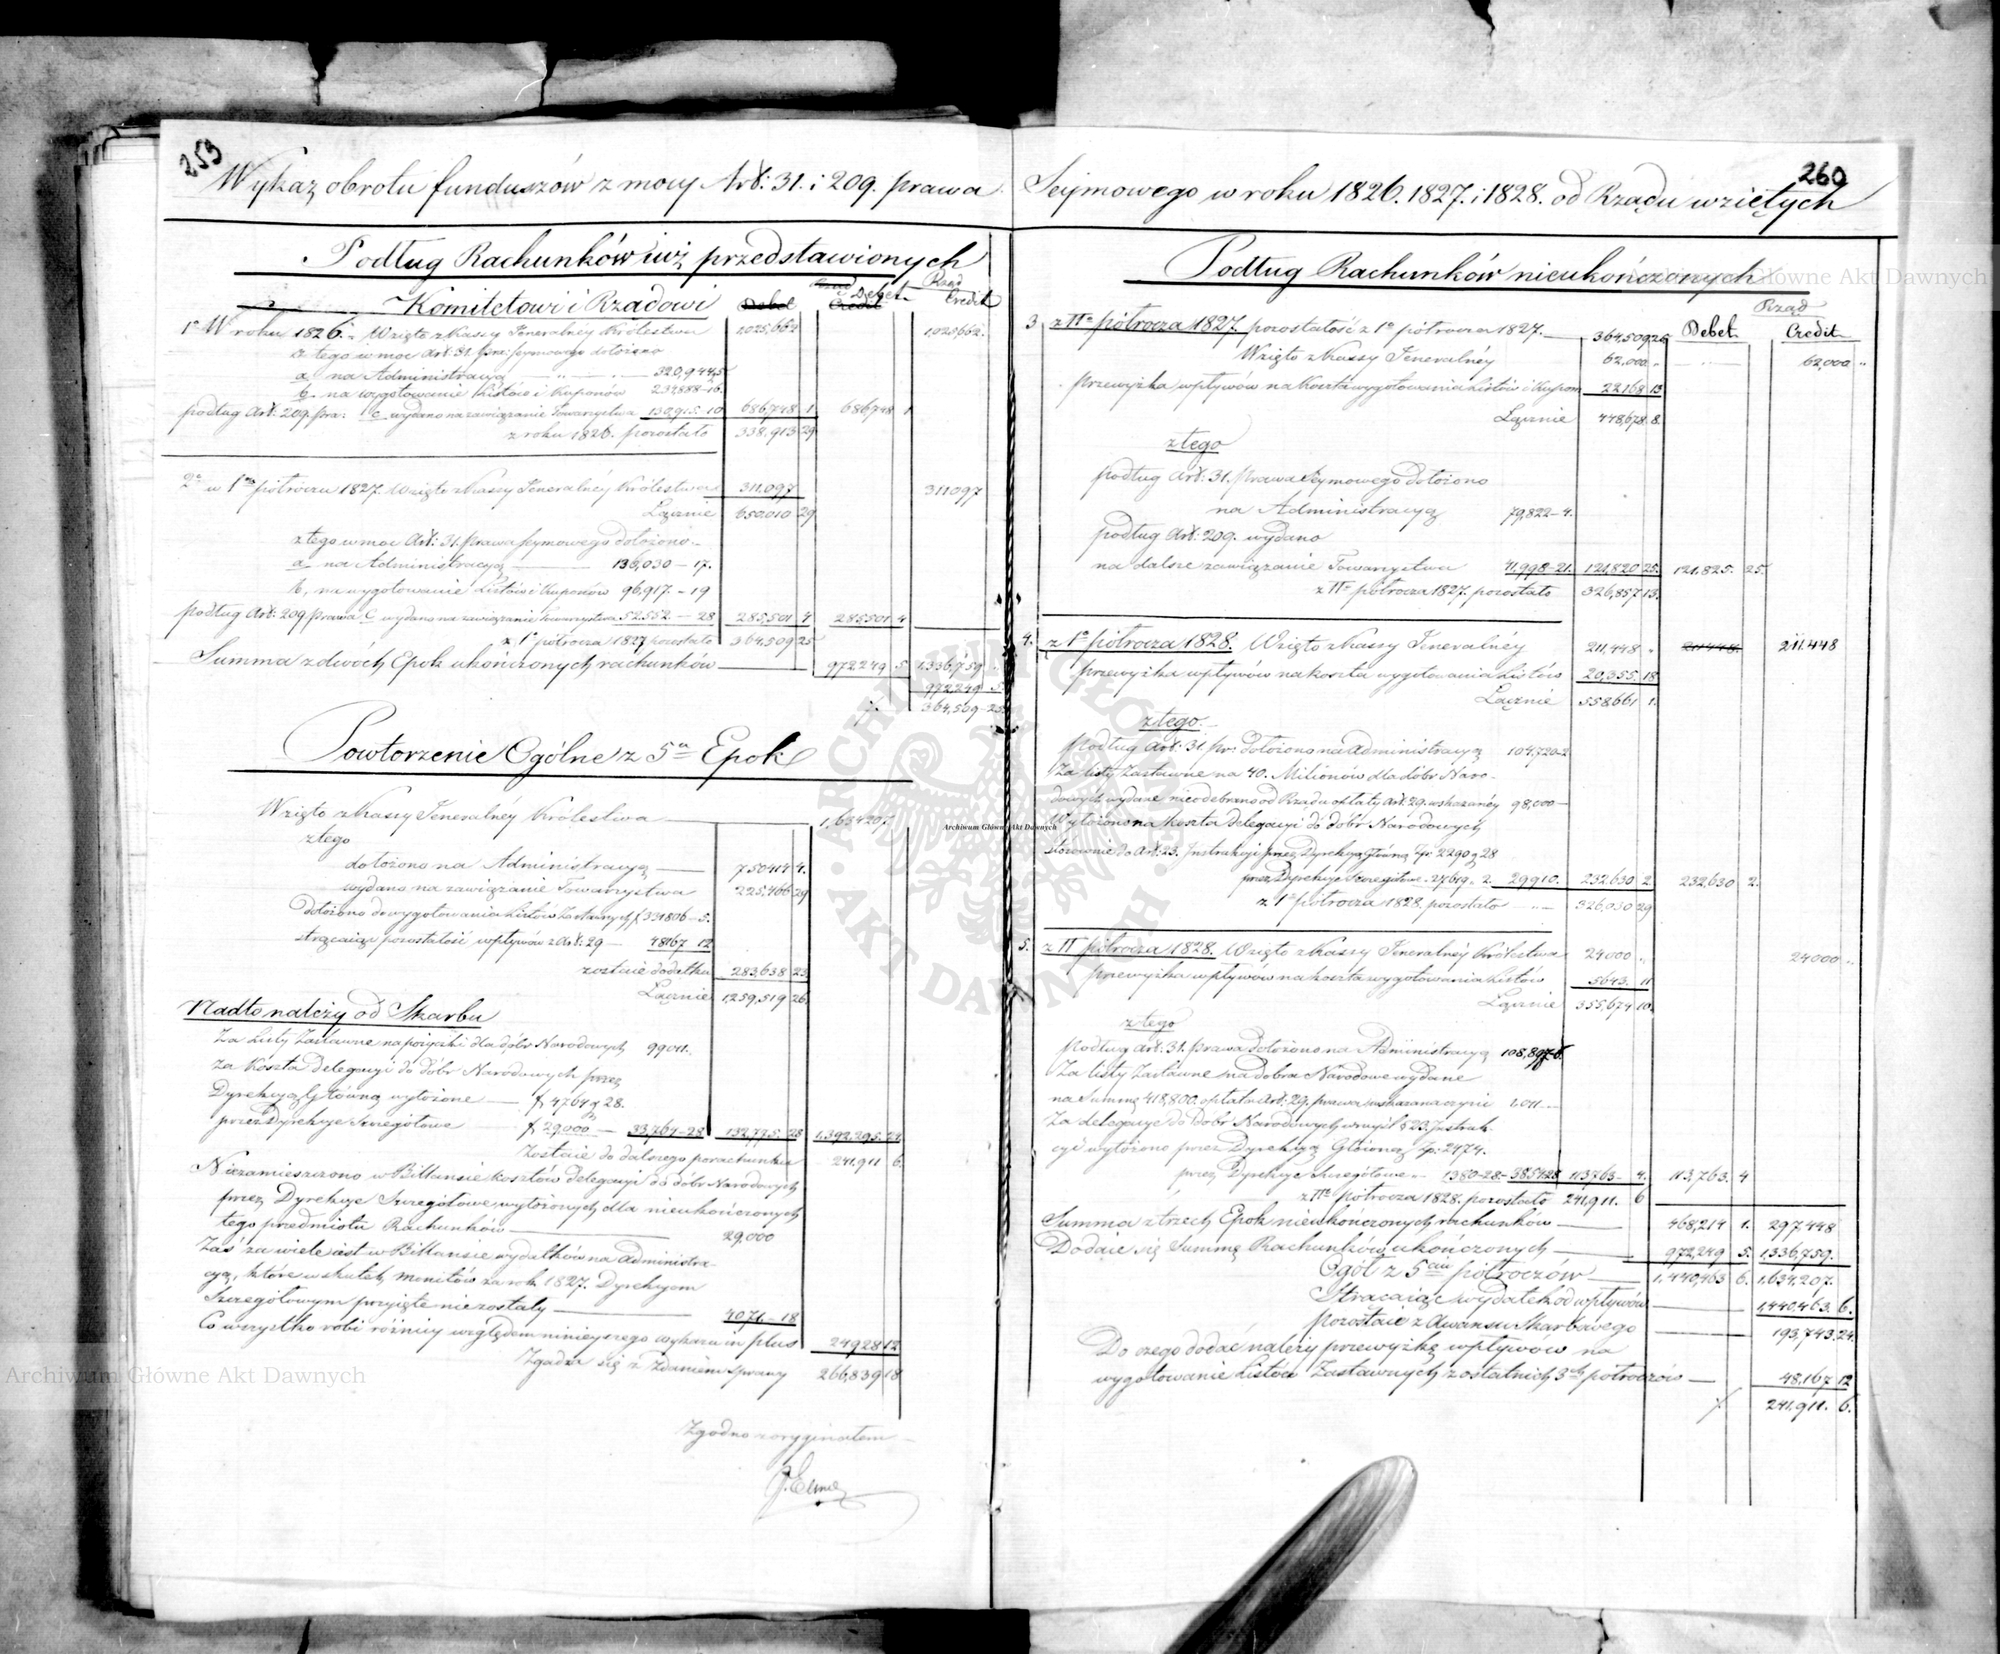 259
Wykaz obrotu funduszów z mocy Art: 31. i 209. prawa
Podług Rachunków iuż przedstawionych
Komitetowi i Rządowi
Debet
Rząd
Credit
Debet
Rząd
Credit
1o W roku 1826. Wzięto z Kassy Jeneralnéy Królestwa 1,025,662 1,025,662.
z tego w moc Art. 31. Seymowego dołożono
a na Administracyą 320,944,5
b. na wygotowanie Listów i Kuponów 234888-16.
podług Art: 209. pra: c wydano na zawiązanie Towarzystwa 130,915.10 686,748 1 686,748 1
z roku 1826. pozostało 338,913 29
2o w 1m półroczu 1827. Wzięto z Kassy Jeneralnéy Królestwa 311,097 311097
Łącznie 650,010 29
z tego w moc Art: 31. prawa Seymowego dołożono
a na Administracyą 136,030-17.
b, na wygotowanie Listów i Kuponów 96,917.-19
podług Art: 209 prawa C wydano na zawiązanie Towarzystwa 52552-28 285,501 4 285501 4
z 1o półrocza 1827 pozostało 364,509 25
Summa z dwóch Epok ukończonych rachunków 972249 5. 1,336,759
972,249 5.
364,509-25
Powtorzenie Ogólne z 5u Epok
Wzięto z Kassy Jeneralnéy Królestwa 1,634207.
z tego
dołożono na Administracyą 750414 4.
wydano na zawiązanie Towarzystwa 225,466 29
Dołożono do wygotowania Listów Zastawnych f 331806-5.
strącaiąc pozostałość wpływów z Art: 29 48167 12
zostaie dodatku 283,638 23
Łącznie 1,259,519 26.
Nadto należy od Skarbu
Za Listy Zastawne na pożyczki dla dóbr Narodowych 99011.
za Koszta Delegacyi do dóbr Narodowych przez
Dyrekcyą Główną wyłożone f, 4764 g 28.
przez Dyrekcye Szczegółowe f 29,000 33,764-28 132,775. 28 1,392,295. 24
Zostaie do dalszego porachunku 241,911 6.
Niezamieszczono w Billansie kosztów delegacyi do dóbr Narodowych
przez Dyrekcye Szczegółowe wyłożonych dla nieukończonych
tego przedmiotu Rachunków 29,000
Zaś za wiele iest w Billansie wydatków na Administra-
cyą, które w skutek monitów za rok 1827. Dyrekcyom
Szczegółowym przyięte nie zostały 4071-18
Co wszystko robi różnicy względem ninieyszego wykazu in plus 24928 12
Zgadza się z Zdaniem Sprawy 266,839 18
Zgodno z oryginałem
260
Seymowego w roku 1826. 1827. i 1828. od Rządu wziętych
Podług Rachunków nieukończonych
Rząd
Debet. Credit
3 z IIo półrocza 1827. pozostałość z 1o półrocza 1827. 364,509,25
Wzięto z Kassy Jeneralnéy 62,000 62,000
Przewyżka wpływów na Koszta wygotowania Listów i Kupon 22168 13
Łącznie 448,678.8.
z tego
podług Art: 31. prawa Seymowego dołożono
na Administracyą 79,822-4.
podług Art: 209. wydano
na dalsze zawiązanie Towarzystwa 41,998-21. 121,820 25. 121,825. 25.
z IIo półrocza 1827. pozostało 326,857 13.
4. z 1o półrocza 1828. Wzięto z Kassy Jeneralnéy 211,448 211448. 211.448
przewyżka wpływów na koszta wygotowania Listów 20,355. 18
Łącznie 558661 1.
z tego
podług Art: 31. pr: dołożono na Administracyą 104,720-2
Za Listy Zastawne na 40. Milionów dla dóbr Naro-
dowych wydane nieodebrano od Rządu opłaty Art. 29. wskazanéy 98,000-
Wyłożono na Koszta delegacyi do dóbr Narodowych
stosownie do Art: 23. Instrukcyi przez Dyrekcyą Główną Zp: 2290 g 28
przez Dyrekcye Szczegółowe 27619 2. 29910. 232,630 2 232,630 2.
z 1o półrocza 1828. pozostało 326,030 29
5. z II półrocza 1828. Wzięto z Kassy Jeneralnéy Królestwa 24000 24000
przewyżka wpływów na koszta wygotowania Listów 5643. 11
Łącznie 355,674 10.
z tego
podług Art: 31. prawa dołożono na Administracyą 108,897-6.
Za Listy Zastawne na dobra Narodowe wydane
na Summę 418,800. opłata Art: 29. prawa wskazana czyni 1,011
Za delegacye do Dóbr Narodowych w myśl § 23. Instruk-
cyi wyłożono przez Dyrekcyą Główną Zp: 2474.
przez Dyrekcye Szczegółowe 1380-28- 3854.28 113763- 4. 113,763. 4
z IIo półrocza 1828. pozostało 241,911. 6
Summa z trzech Epok nieukończonych rachunków 468,214 1. 297,448
Dodaie się Summę Rachunków ukończonych 972,249 5. 1,336,759.
Ogół z 5ciu półroczów 1,440,463 6. 1,634,207.
Strącaiąc wydatek od wpływów 1,440,463. 6.
pozostaie z Awansu Skarbowego 193,743.24
Do czego dodać należy przewyżkę wpływów na
wygotowanie Listów Zastawnych z ostatnich 3ch półroczów 48,167 12
241,911. 6.
ARCHIWUM GŁÓWNE AKT DAWNYCH
Archiwum Główne Akt Dawnych
Archiwum Główne Akt Dawnych
Główne Akt Dawnych